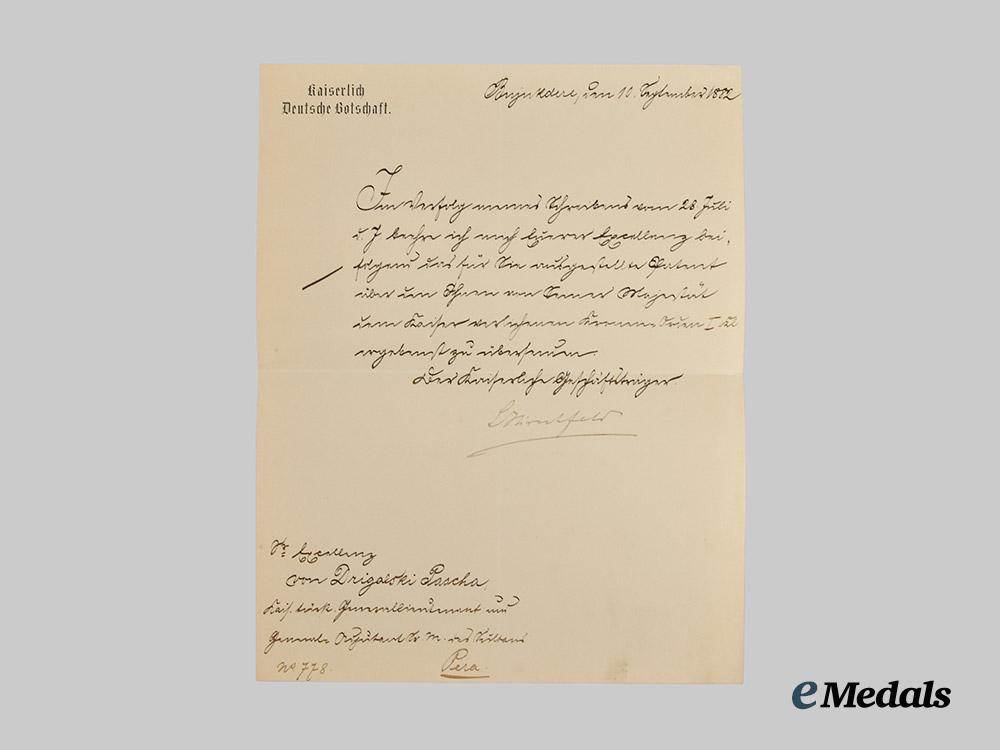 Kaiserlich
Deutsche Botschaft.
Bujukdere, den 10. September 1882
Im Verfolg meines Schreibens vom 28. Juli
d. J. beehre ich mich Euerer Excellenz bei-
folgend das für Sie ausgestellte Patent
über den Ihnen von Seiner Majestät
dem Kaiser verliehenen Kronen-Orden I Kl
ergebenst zu übersenden.
Der Kaiserliche Geschäftsträger
Hirschfeld
Sr. Excellenz
von Drigalski Pascha,
Kais. türk. Generallieutenant und
General-Adjutant Sr. M. des Sultans
No 778.
Pera.
eMedals